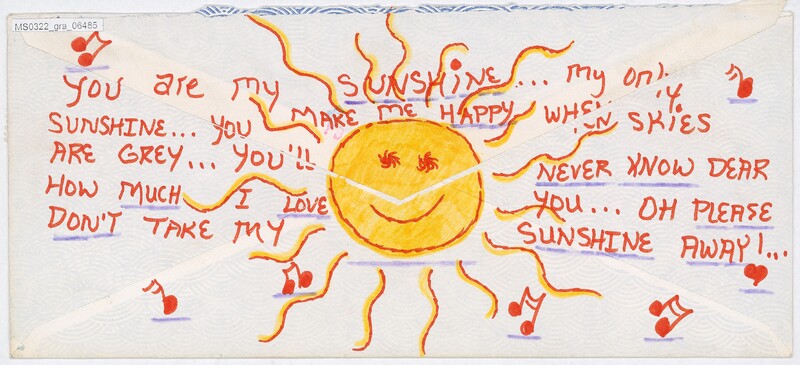 MS0322_gra_06485
You are my SUNSHINE... my only
SUNSHINE... YOU MAKE ME HAPPY WHEN SKIES
ARE GREY... YOU'll NEVER KNOW DEAR
HOW MUCH I LOVE YOU... OH PLEASE
DON'T TAKE MY SUNSHINE AWAY!...